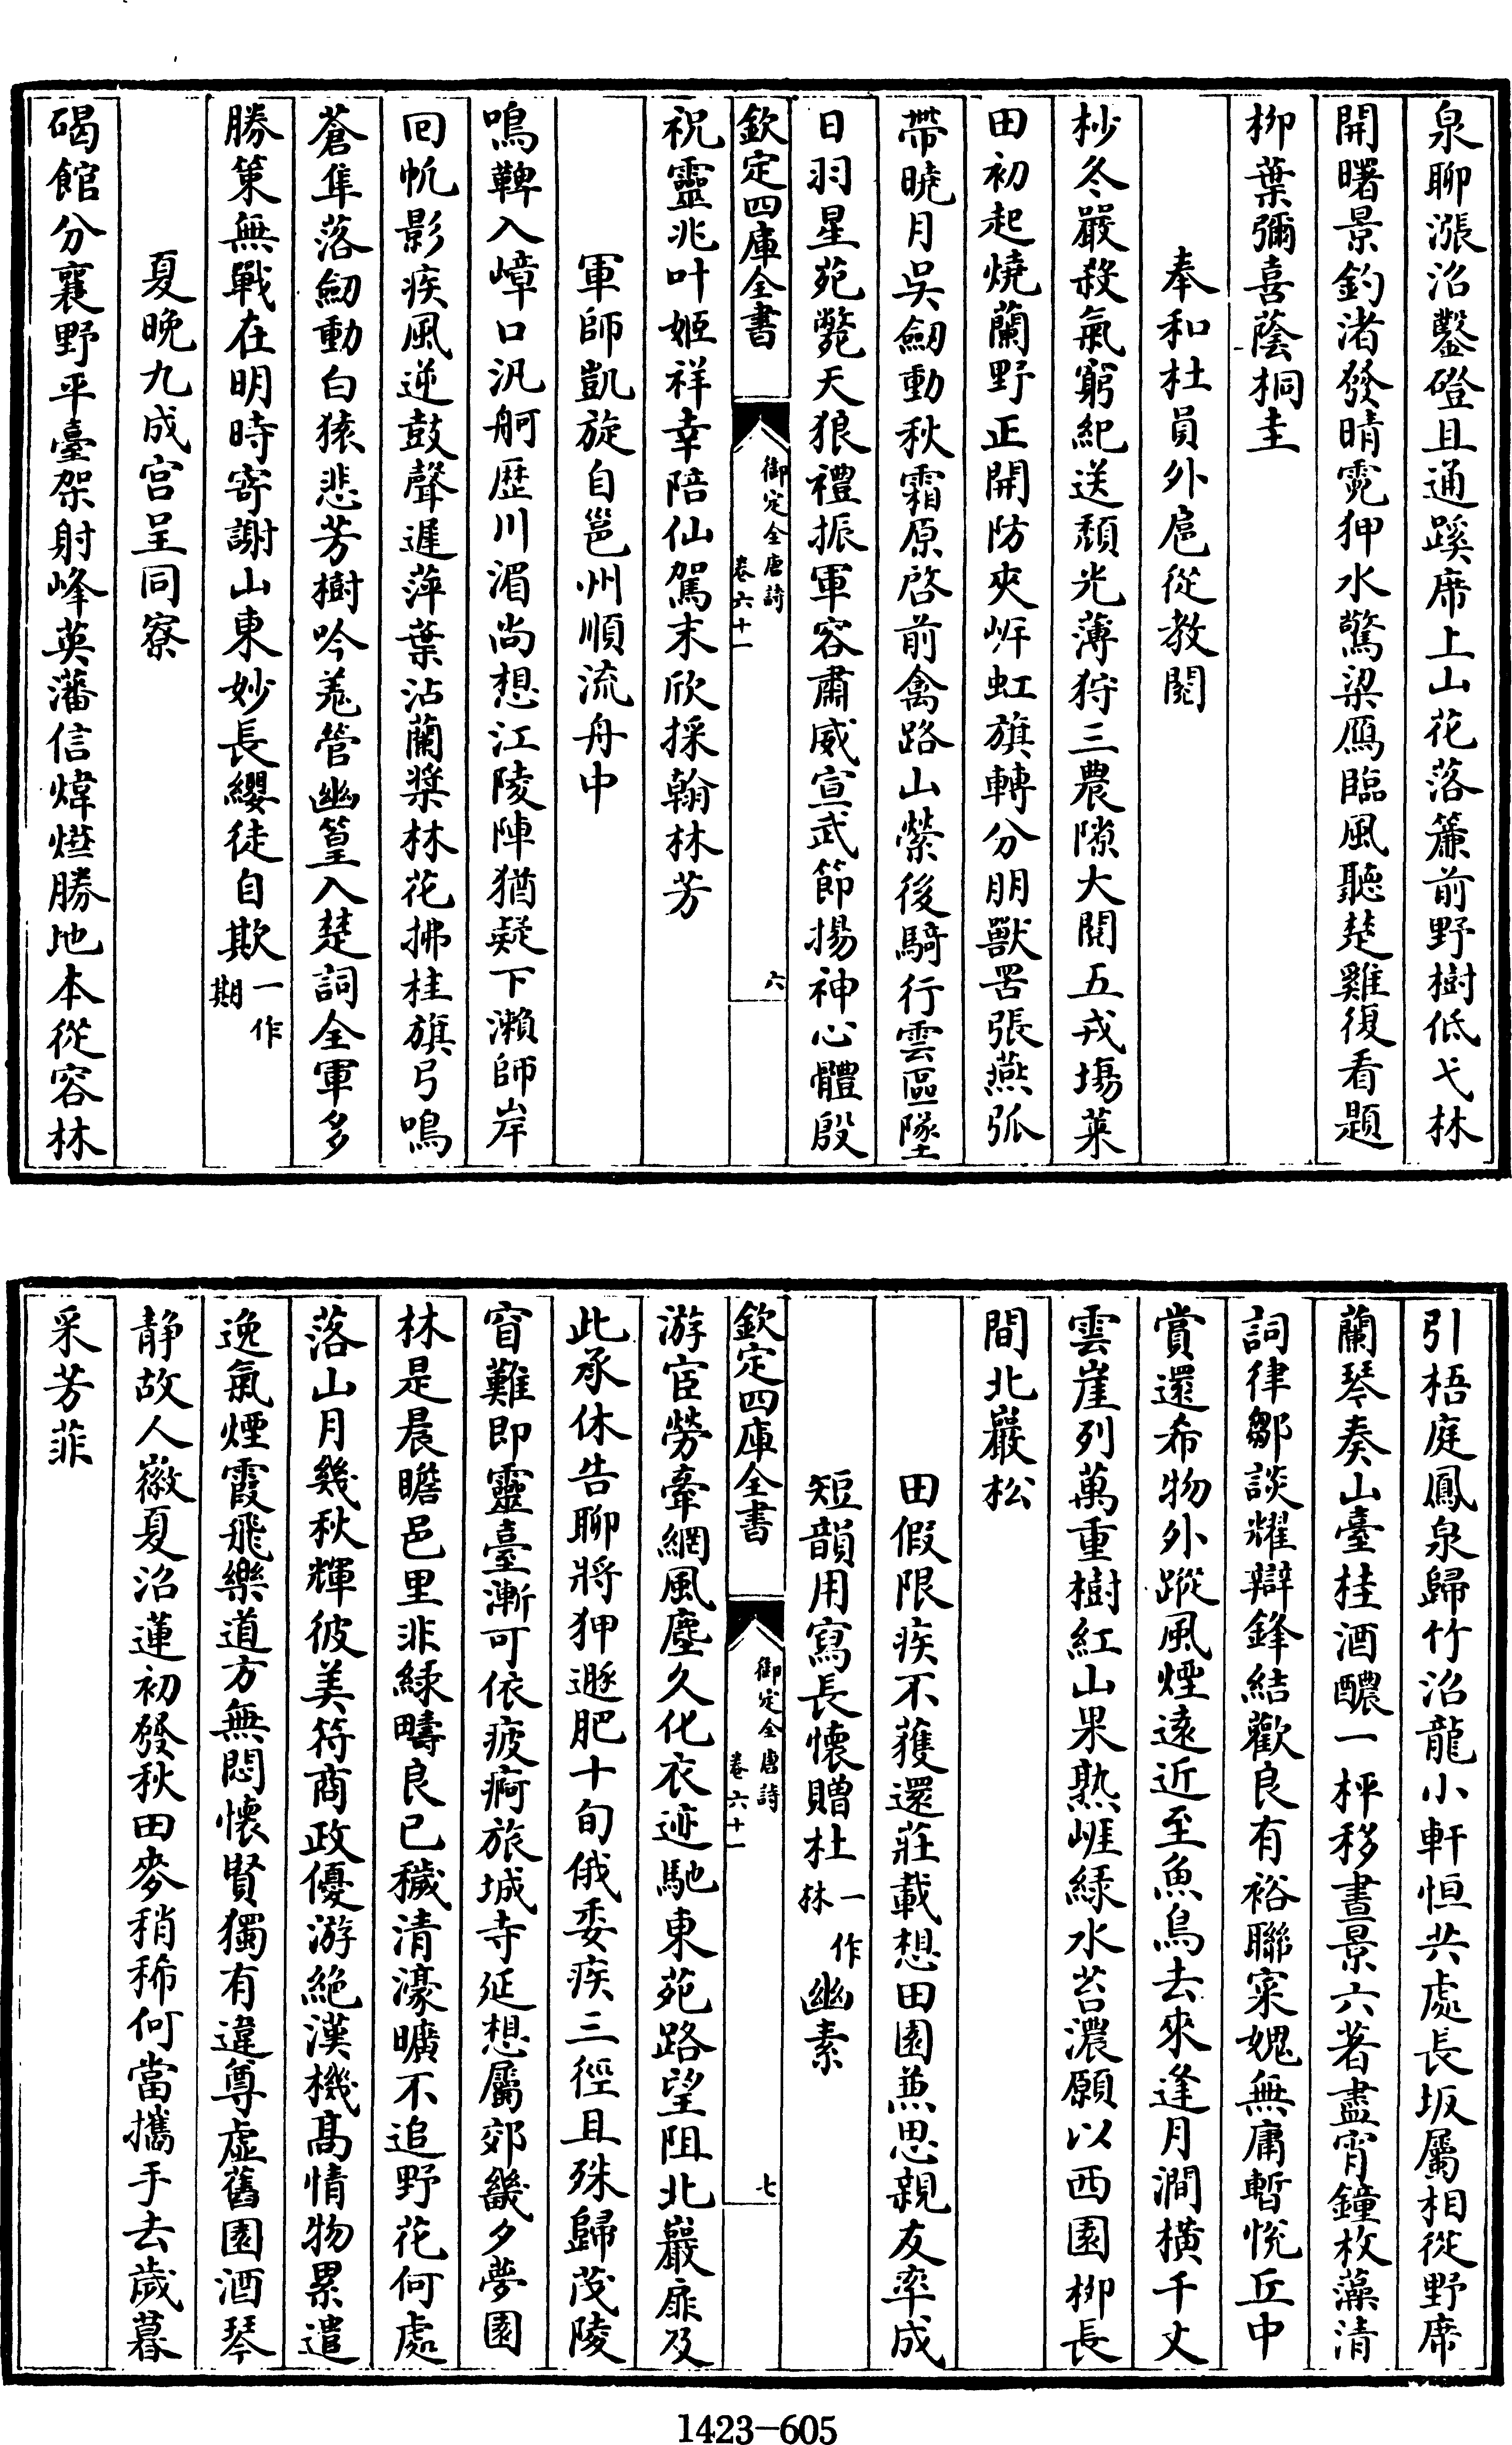 泉聊漲沼鑿磴且通蹊席上山花落簾前野樹低弋林
開曙景釣渚發晴霓狎水驚梁鴈臨風聽楚雞復看題
柳葉彌喜蔭桐圭
奉和杜員外扈從教閱
杪冬嚴殺氣窮紀送頹光薄狩三農隙大閱五戎塲萊
田初起燒蘭野正開防夾岍虹旗轉分朋獸罟張燕弧
帶曉月吳劒動秋霜原啓前禽路山縈後騎行雲區墜
日羽星苑斃天狼禮振軍容肅威宣武節揚神心體殷
欽定四庫全書
御定全唐詩
卷六十一
六
祝靈兆叶姬祥幸陪仙駕末欣採翰林芳
軍師凱旋自邕州順流舟中
鳴鞞入嶂口汎舸歴川湄尚想江陵陣猶疑下瀨師岸
回帆影疾風逆鼓聲遲萍葉沾蘭槳林花拂桂旗弓鳴
蒼隼落劒動白猿悲芳樹吟羗管幽篁入楚詞全軍多
勝策無戰在明時寄謝山東妙長纓徒自欺一作期
夏晚九成宮呈同寮
碣館分襄野平臺架射峰英藩信煒燁勝地本從容林
引梧庭鳳泉歸竹沼龍小軒恒共處長坂屬相從野席
蘭琴奏山臺桂酒醲一枰移晝景六著盡宵鐘枚藻清
詞律鄒談耀辯鋒結歡良有裕聯寀媿無庸暫悅丘中
賞還希物外蹤風煙遠近至魚鳥去來逢月澗橫千丈
雲崖列萬重樹紅山果熟崕綠水苔濃願以西園柳長
間北巖松
田假限疾不獲還莊載想田園兼思親友率成
短韻用寫長懷贈杜一作林幽素
欽定四庫全書
御定全唐詩
卷六十一
七
游宦勞牽網風塵久化衣迹馳東苑路望阻北巖扉及
此承休告聊將狎遯肥十旬俄委疾三徑且殊歸茂陵
窅難即靈臺漸可依疲痾旅城寺延想屬郊畿夕夢園
林是晨瞻邑里非綠疇良已穢清濠曠不追野花何處
落山月幾秋輝彼美符商政優游絕漢機高情物累遣
逸氣煙霞飛樂道方無悶懷賢獨有違尊虛舊園酒琴
靜故人徽夏沼蓮初發秋田麥稍稀何當攜手去歲暮
采芳菲
1423-605